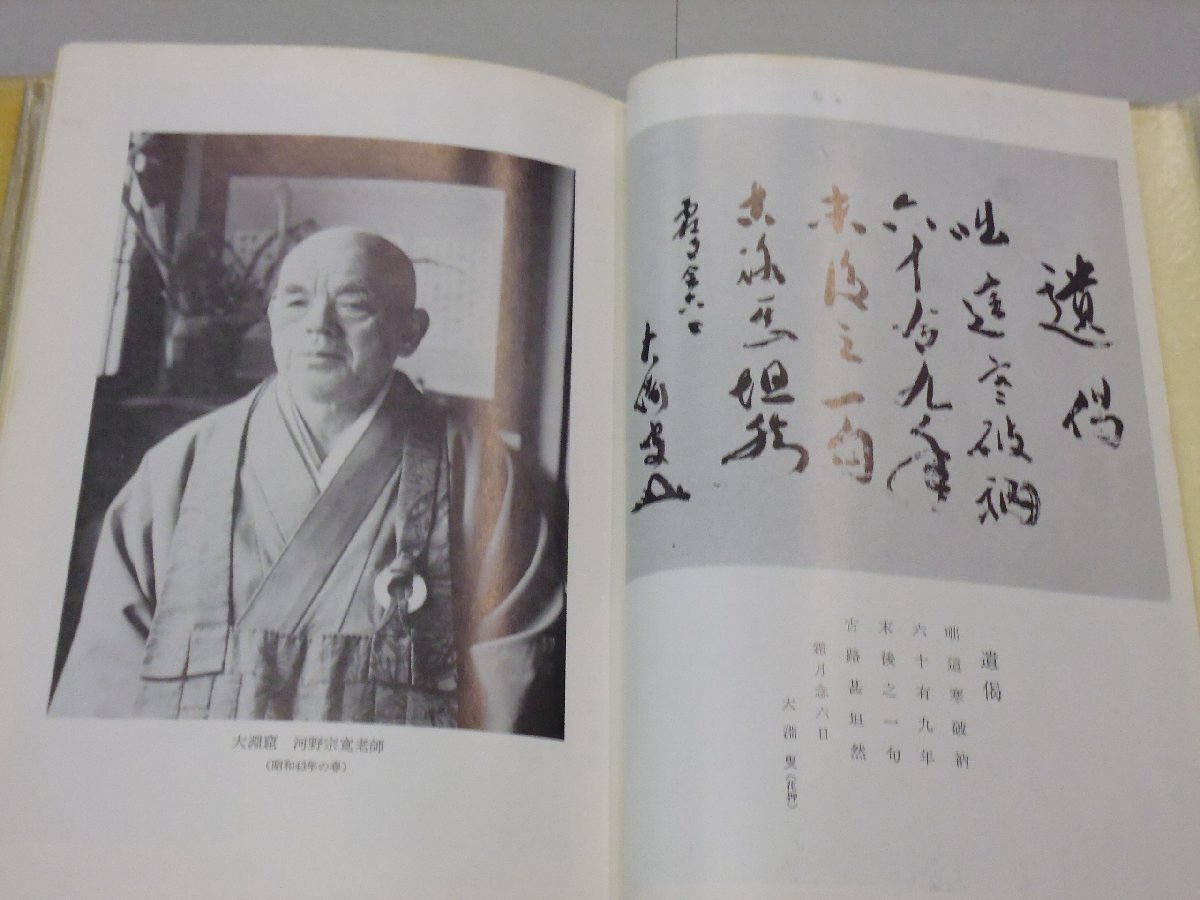 大淵窟 河野宗寛老師
(昭和43年の春)
遺偈
咄這寒破衲
六十有九年
末後之一句
古路甚坦然
霜月念六日
大淵叟
遺偈
咄這寒破衲
六十有九年
末後之一句
古路甚坦然
霜月念六日
大淵叟(花押)